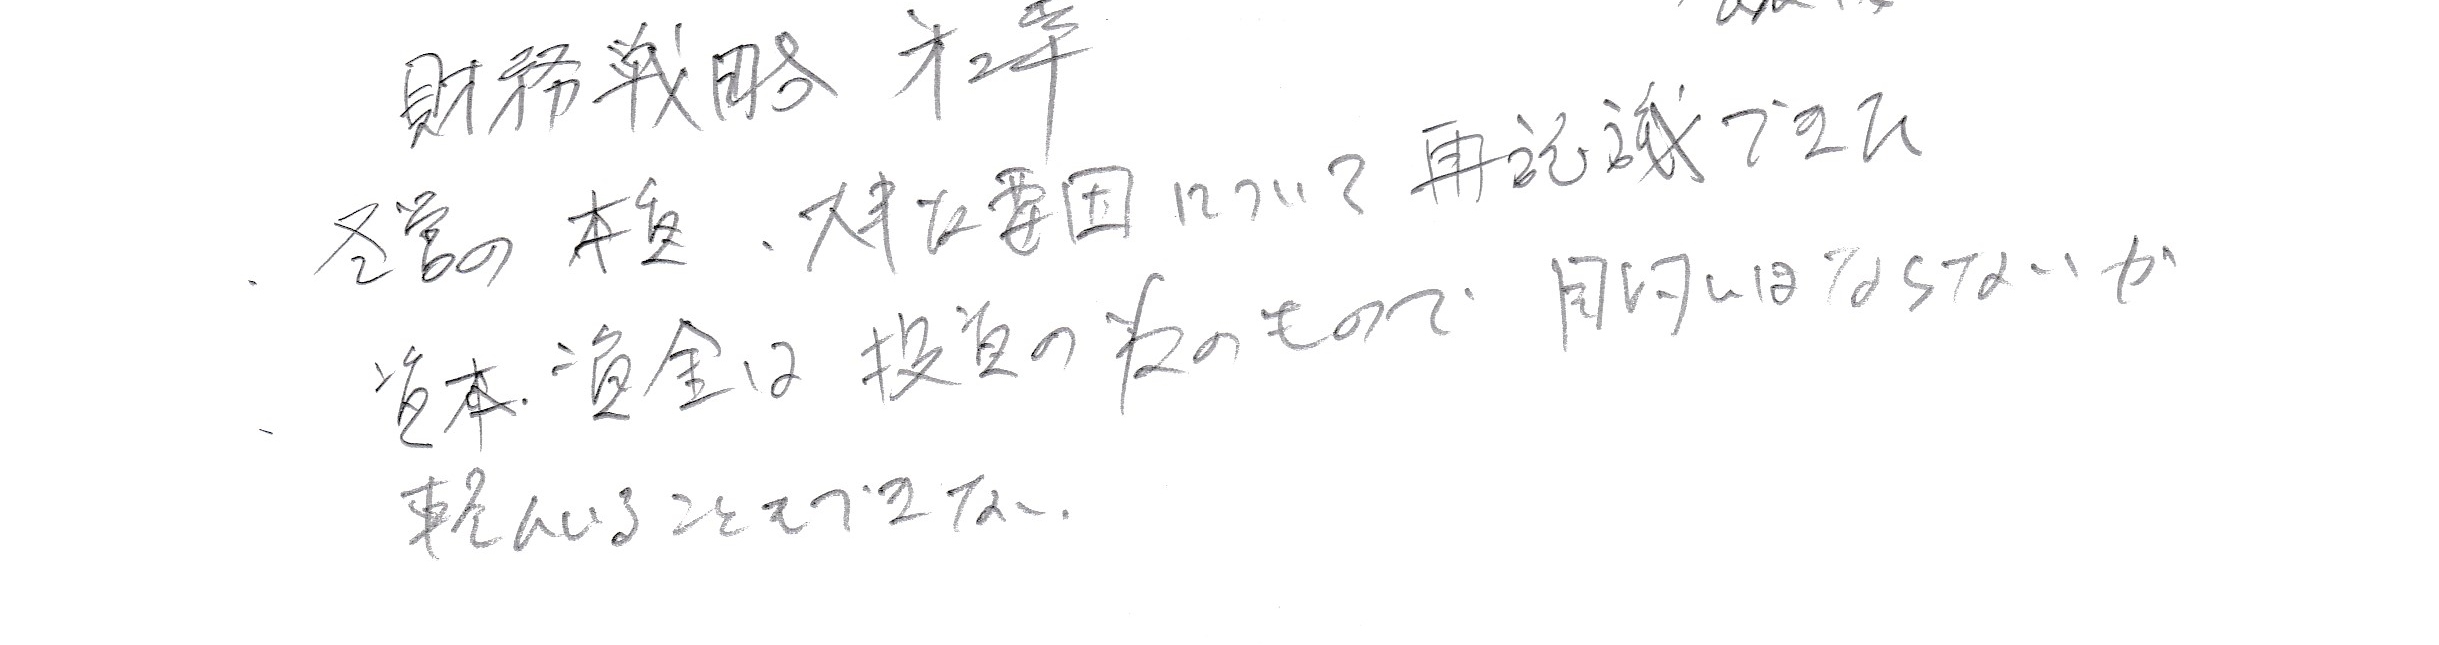 財務戦略 第2章
・経営の本質、大事な要因について再認識できた
・資本・資金は投資の為のもので、目的にはならないが
軽んじることもできない。